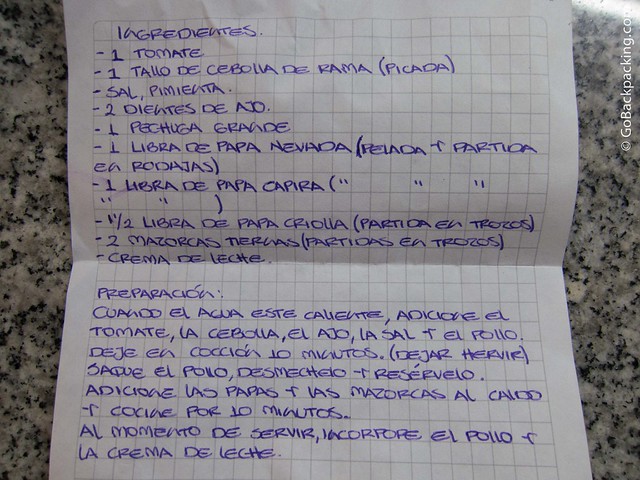 INGREDIENTES.
- 1 TOMATE
- 1 TALLO DE CEBOLLA DE RAMA (PICADA)
- SAL, PIMIENTA.
- 2 DIENTES DE AJO.
- 1 PECHUGA GRANDE
- 1 LIBRA DE PAPA NEVADA (PELADA + PARTIDA
EN RODAJAS)
- 1 LIBRA DE PAPA CAPIRA (" " "
" " )
- 1/2 LIBRA DE PAPA CRIOLLA (PARTIDA EN TROZOS)
- 2 MAZORCAS TIERNAS (PARTIDAS EN TROZOS)
- CREMA DE LECHE.
PREPARACIÓN:
CUANDO EL AGUA ESTE CALIENTE, ADICIONE EL
TOMATE, LA CEBOLLA, EL AJO, LA SAL + EL POLLO.
DEJE EN COCCIÓN 10 MINUTOS. (DEJAR HERVIR)
SAQUE EL POLLO, DESMECHELO + RESÉRVELO.
ADICIONE LAS PAPAS + LAS MAZORCAS AL CALDO
+ COCINE POR 10 MINUTOS.
AL MOMENTO DE SERVIR, INCORPORE EL POLLO +
LA CREMA DE LECHE.
© GoBackpacking.com